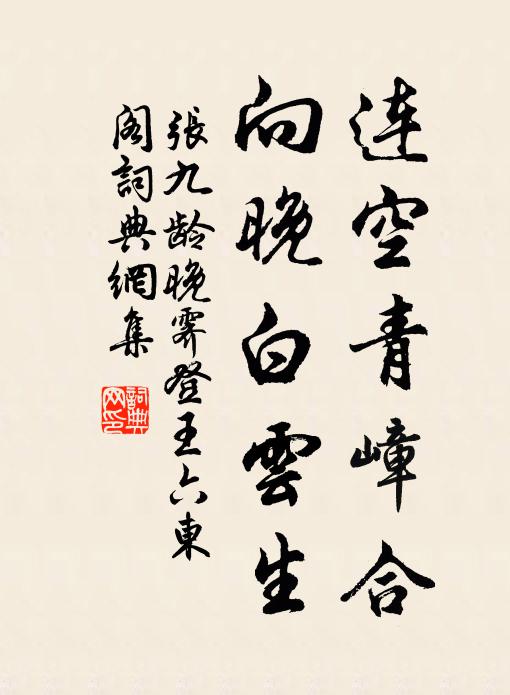 連空青嶂合
向晚白雲生
張九齡晚霽登王六東
閣詞典網集
詞典网印